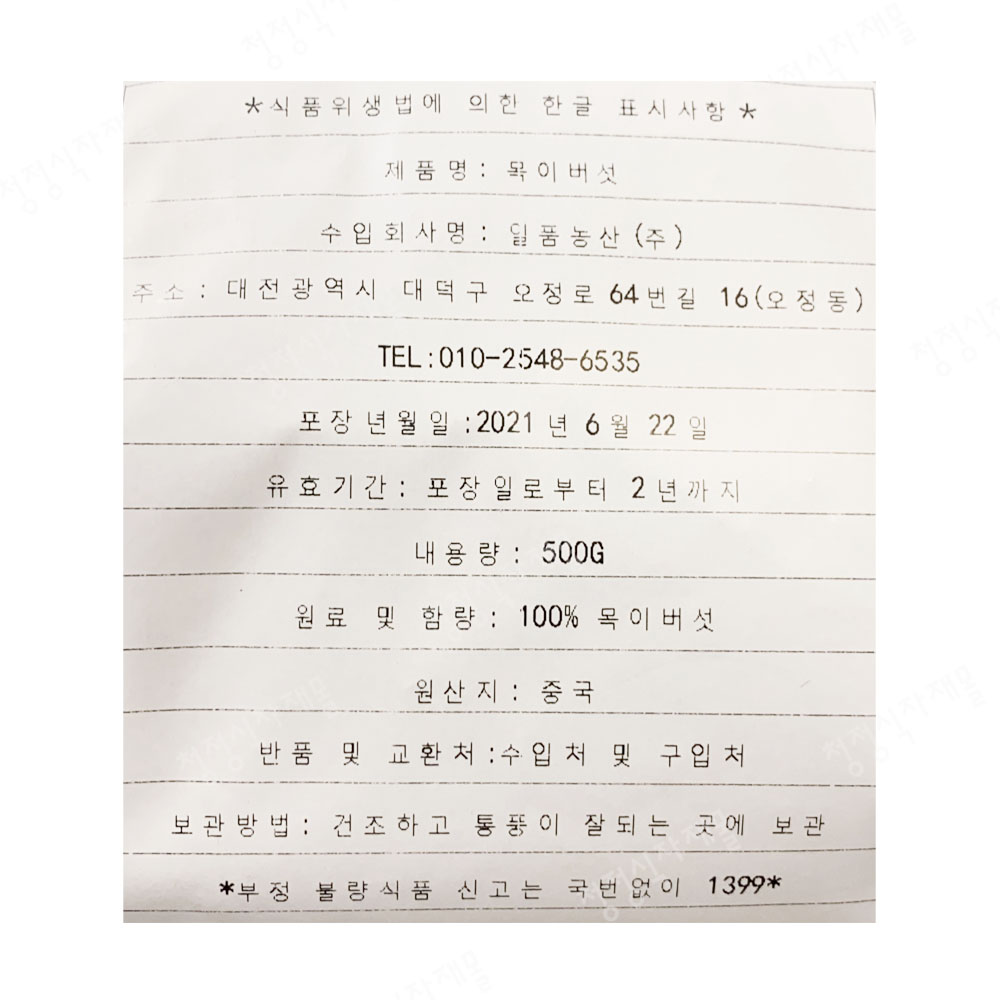 *식품위생법에 의한 한글 표시사항*
제품명: 목이버섯
수입회사명: 일품농산(주)
주소: 대전광역시 대덕구 오정로64번길 16(오정동)
TEL:010-2548-6535
포장년월일:2021년 6월 22일
유효기간: 포장일로부터 2년까지
내용량: 500G
원료 및 함량: 100% 목이버섯
원산지: 중국
반품 및 교환처:수입처 및 구입처
보관방법: 건조하고 통풍이 잘되는 곳에 보관
*부정 불량식품 신고는 국번없이 1399*
청정식자재몰